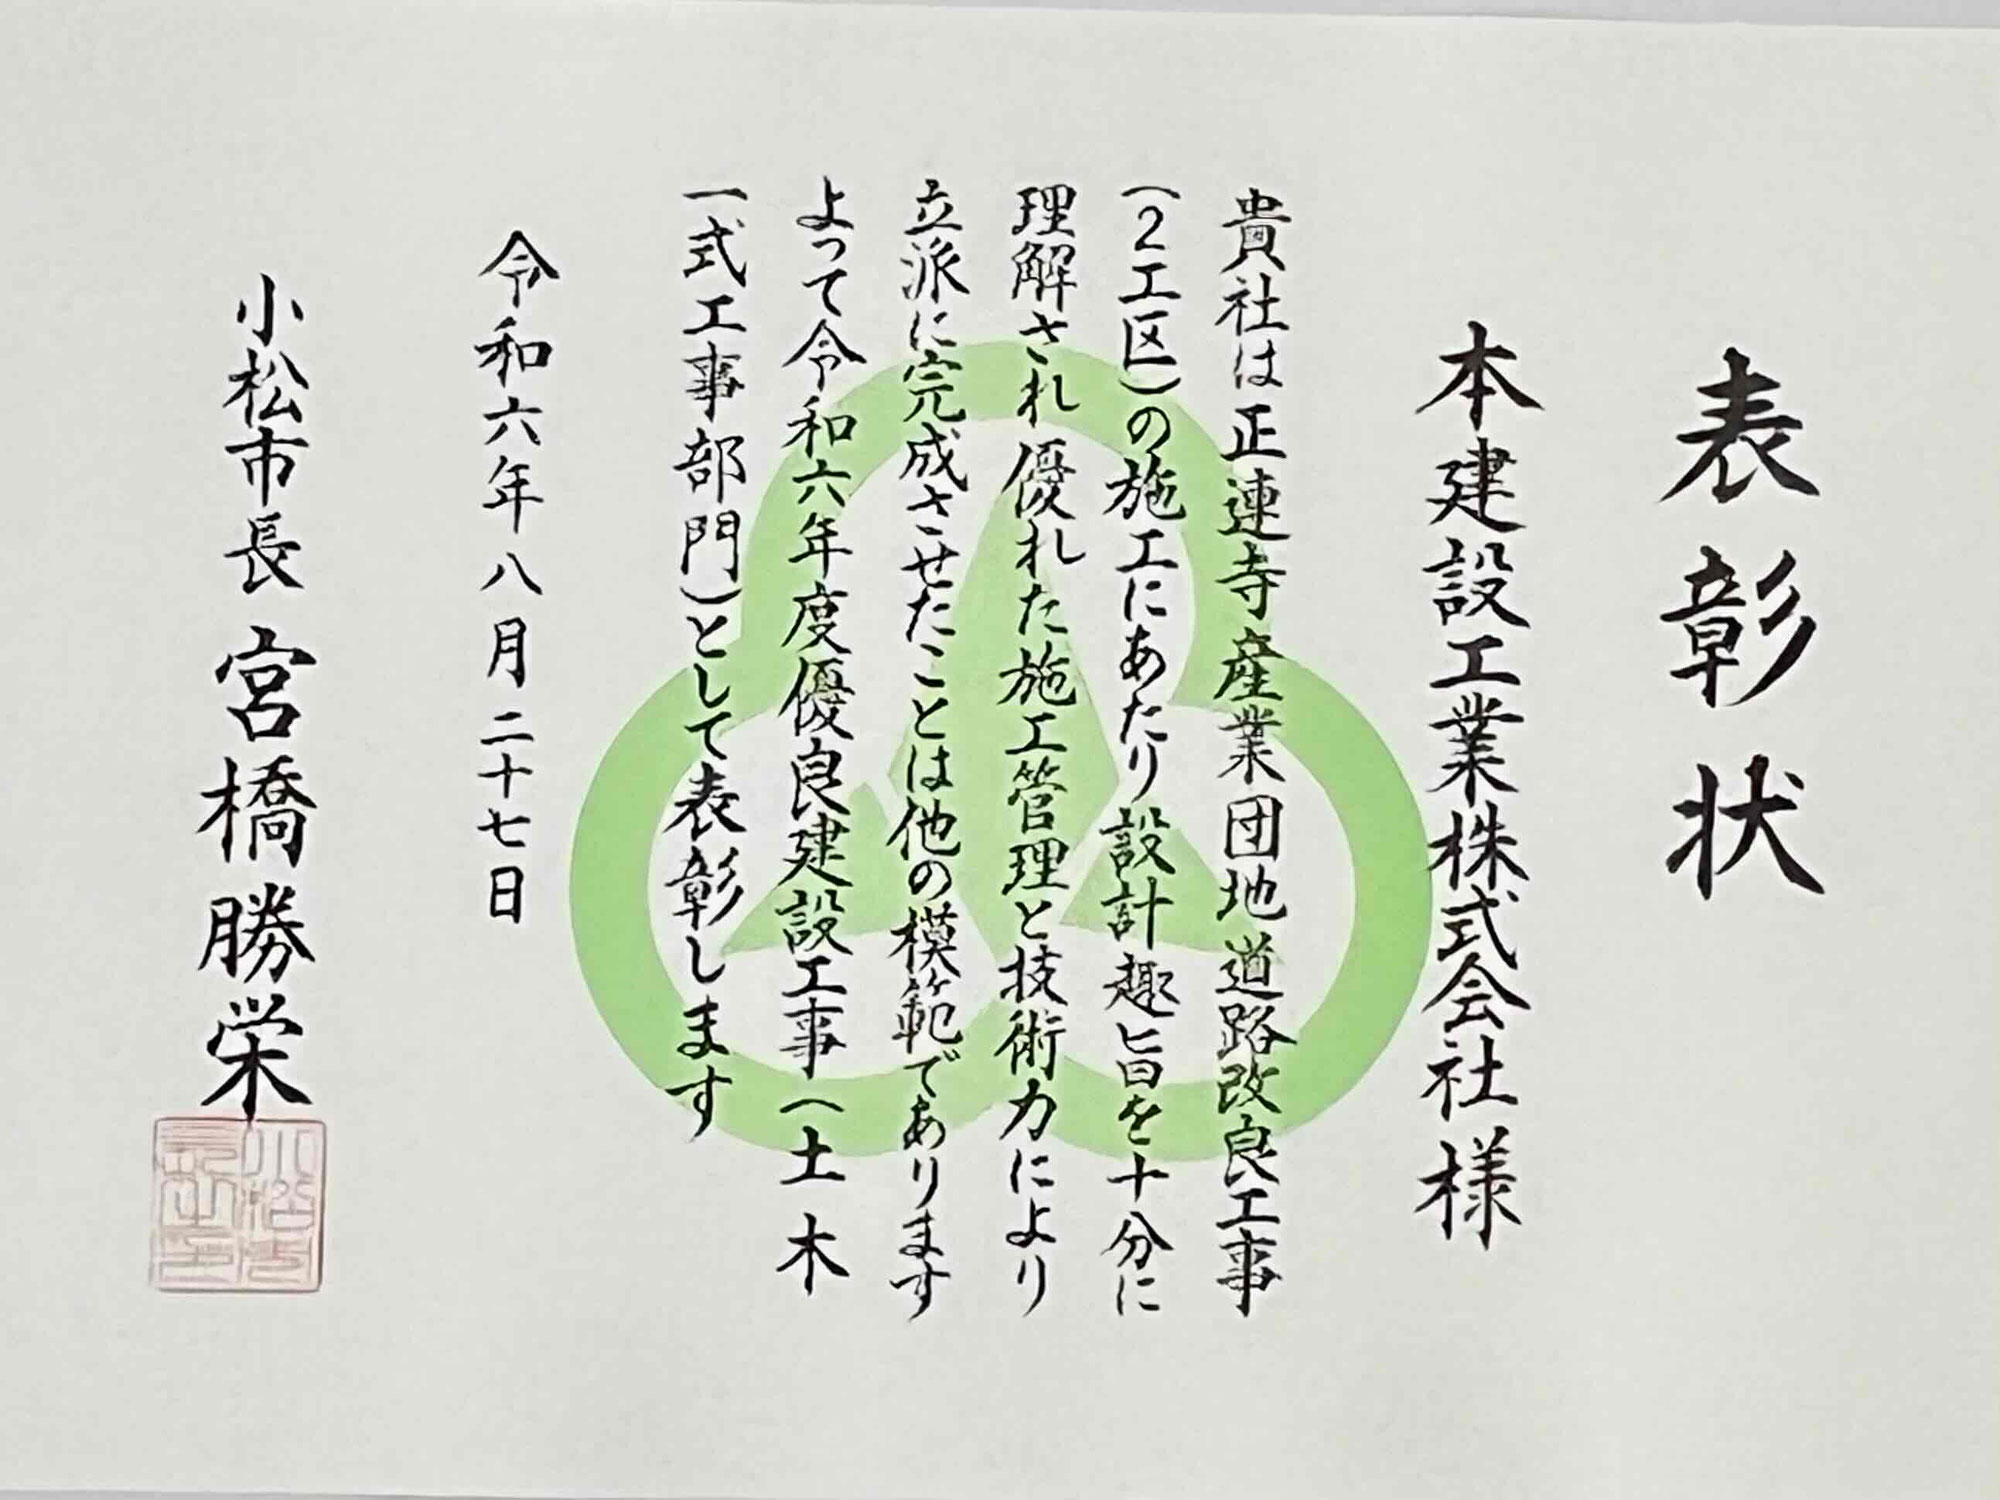 表彰状
本建設工業株式会社様
貴社は正連寺産業団地道路改良工事
(2工区)の施工にあたり設計趣旨を十分に
理解され優れた施工管理と技術力により
立派に完成させたことは他の模範であります
よって令和六年度優良建設工事(土木
一式工事部門)として表彰します
令和六年八月二十七日
小松市長 宮橋勝栄